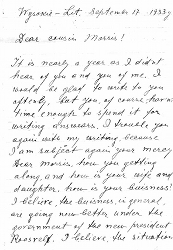 Wysokie-Lit. September 17 1933 y
Dear cousin Morris!
It is nearly a year as I didn't
hear of you and you of me. I
would be glad to write to you
often, but you, of course, have no
time enough to spend it for
writing answears. I trouble you
again with my writing, because
I am subject again your mercy.
Dear Morris, how you getting
along and how is your wife and
daughter, how is your buisness?
I believe the buisness in general
are going now better under the
government of the new president
Roosvelt. I believe, the situation